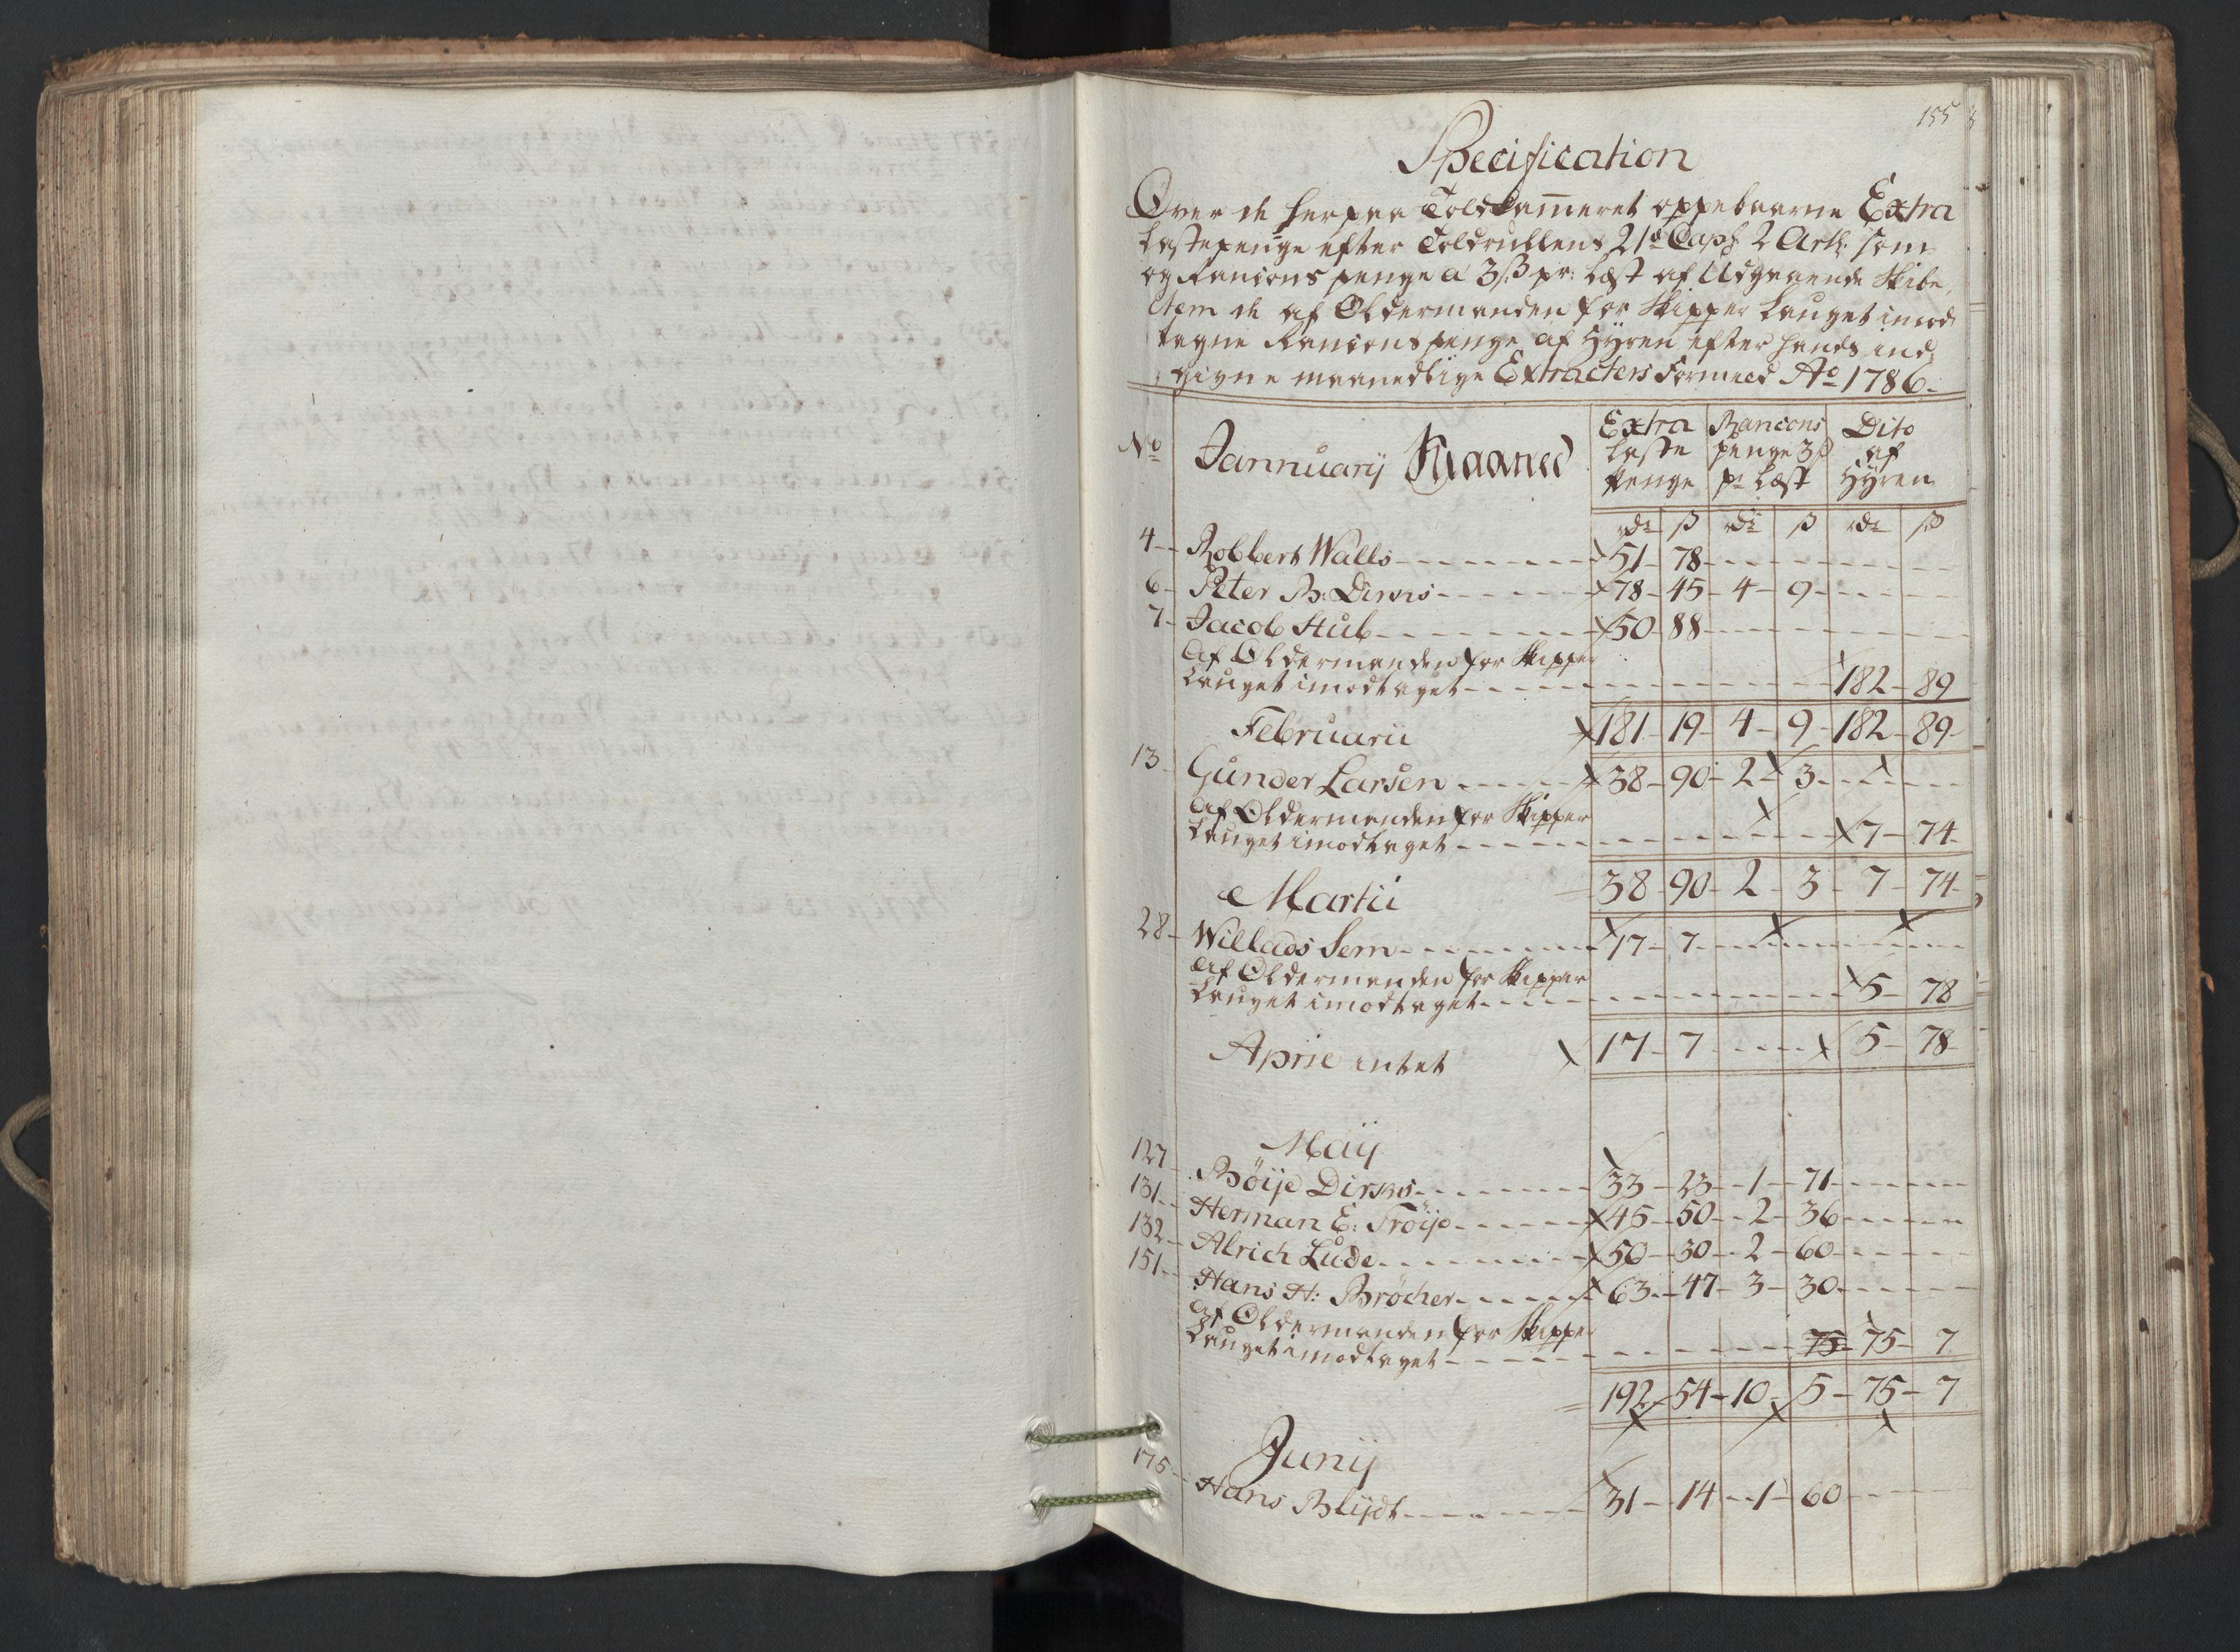 155
Specification
Over de herpaa Toldkam̅eret oppebaarne Extra
Lastepenge efter Toldrullens 21d Capt: 2 Artl: som
og Rancons penge a 3 ß pr: Læst af Udgaaende Skibe,
Item de af Oldermanden for Skipper Lauget imod
tagne Rancons penge af Hyren efter hands ind
givne maanedlige Extracter Formeed Ao 1786.
No Jannuarij Maaned Extra Laste Penge Rancons penge 3 ß pr Læst Dito af Hyren
rdr ß rdr ß rdr ß
4 Robbert Walls 51 78
6 Peter B: Dirns 78 45 4 9
7 Jacob Stub 50 88
Af Oldermanden for Skipper
Lauget imodtaget 182 89
Februarii 181 19 4 9 182 89
13 Gunder Larsen 38 90 2 3
Af Oldermanden for Skipper
Lauget imodtaget 7 74
Martii 38 90 2 3 7 74
28 Willads Sem 17 7
Af Oldermanden for Skipper
Lauget imodtaget 5 78
Aprie intet 17 7 5 78
Maij
127 Böije Dirsks 33 23 1 71
131 Herman E: Tröije 45 50 2 36
132 Alrich Lude 50 30 2 60
151 Hans H: Bröcher 63 47 3 30
Af Oldermanden for Skipper
Lauget imodtaget 75 75 7
192 54 10 5 75 7
Junij
175 Hans Blijdt 31 14 1 60